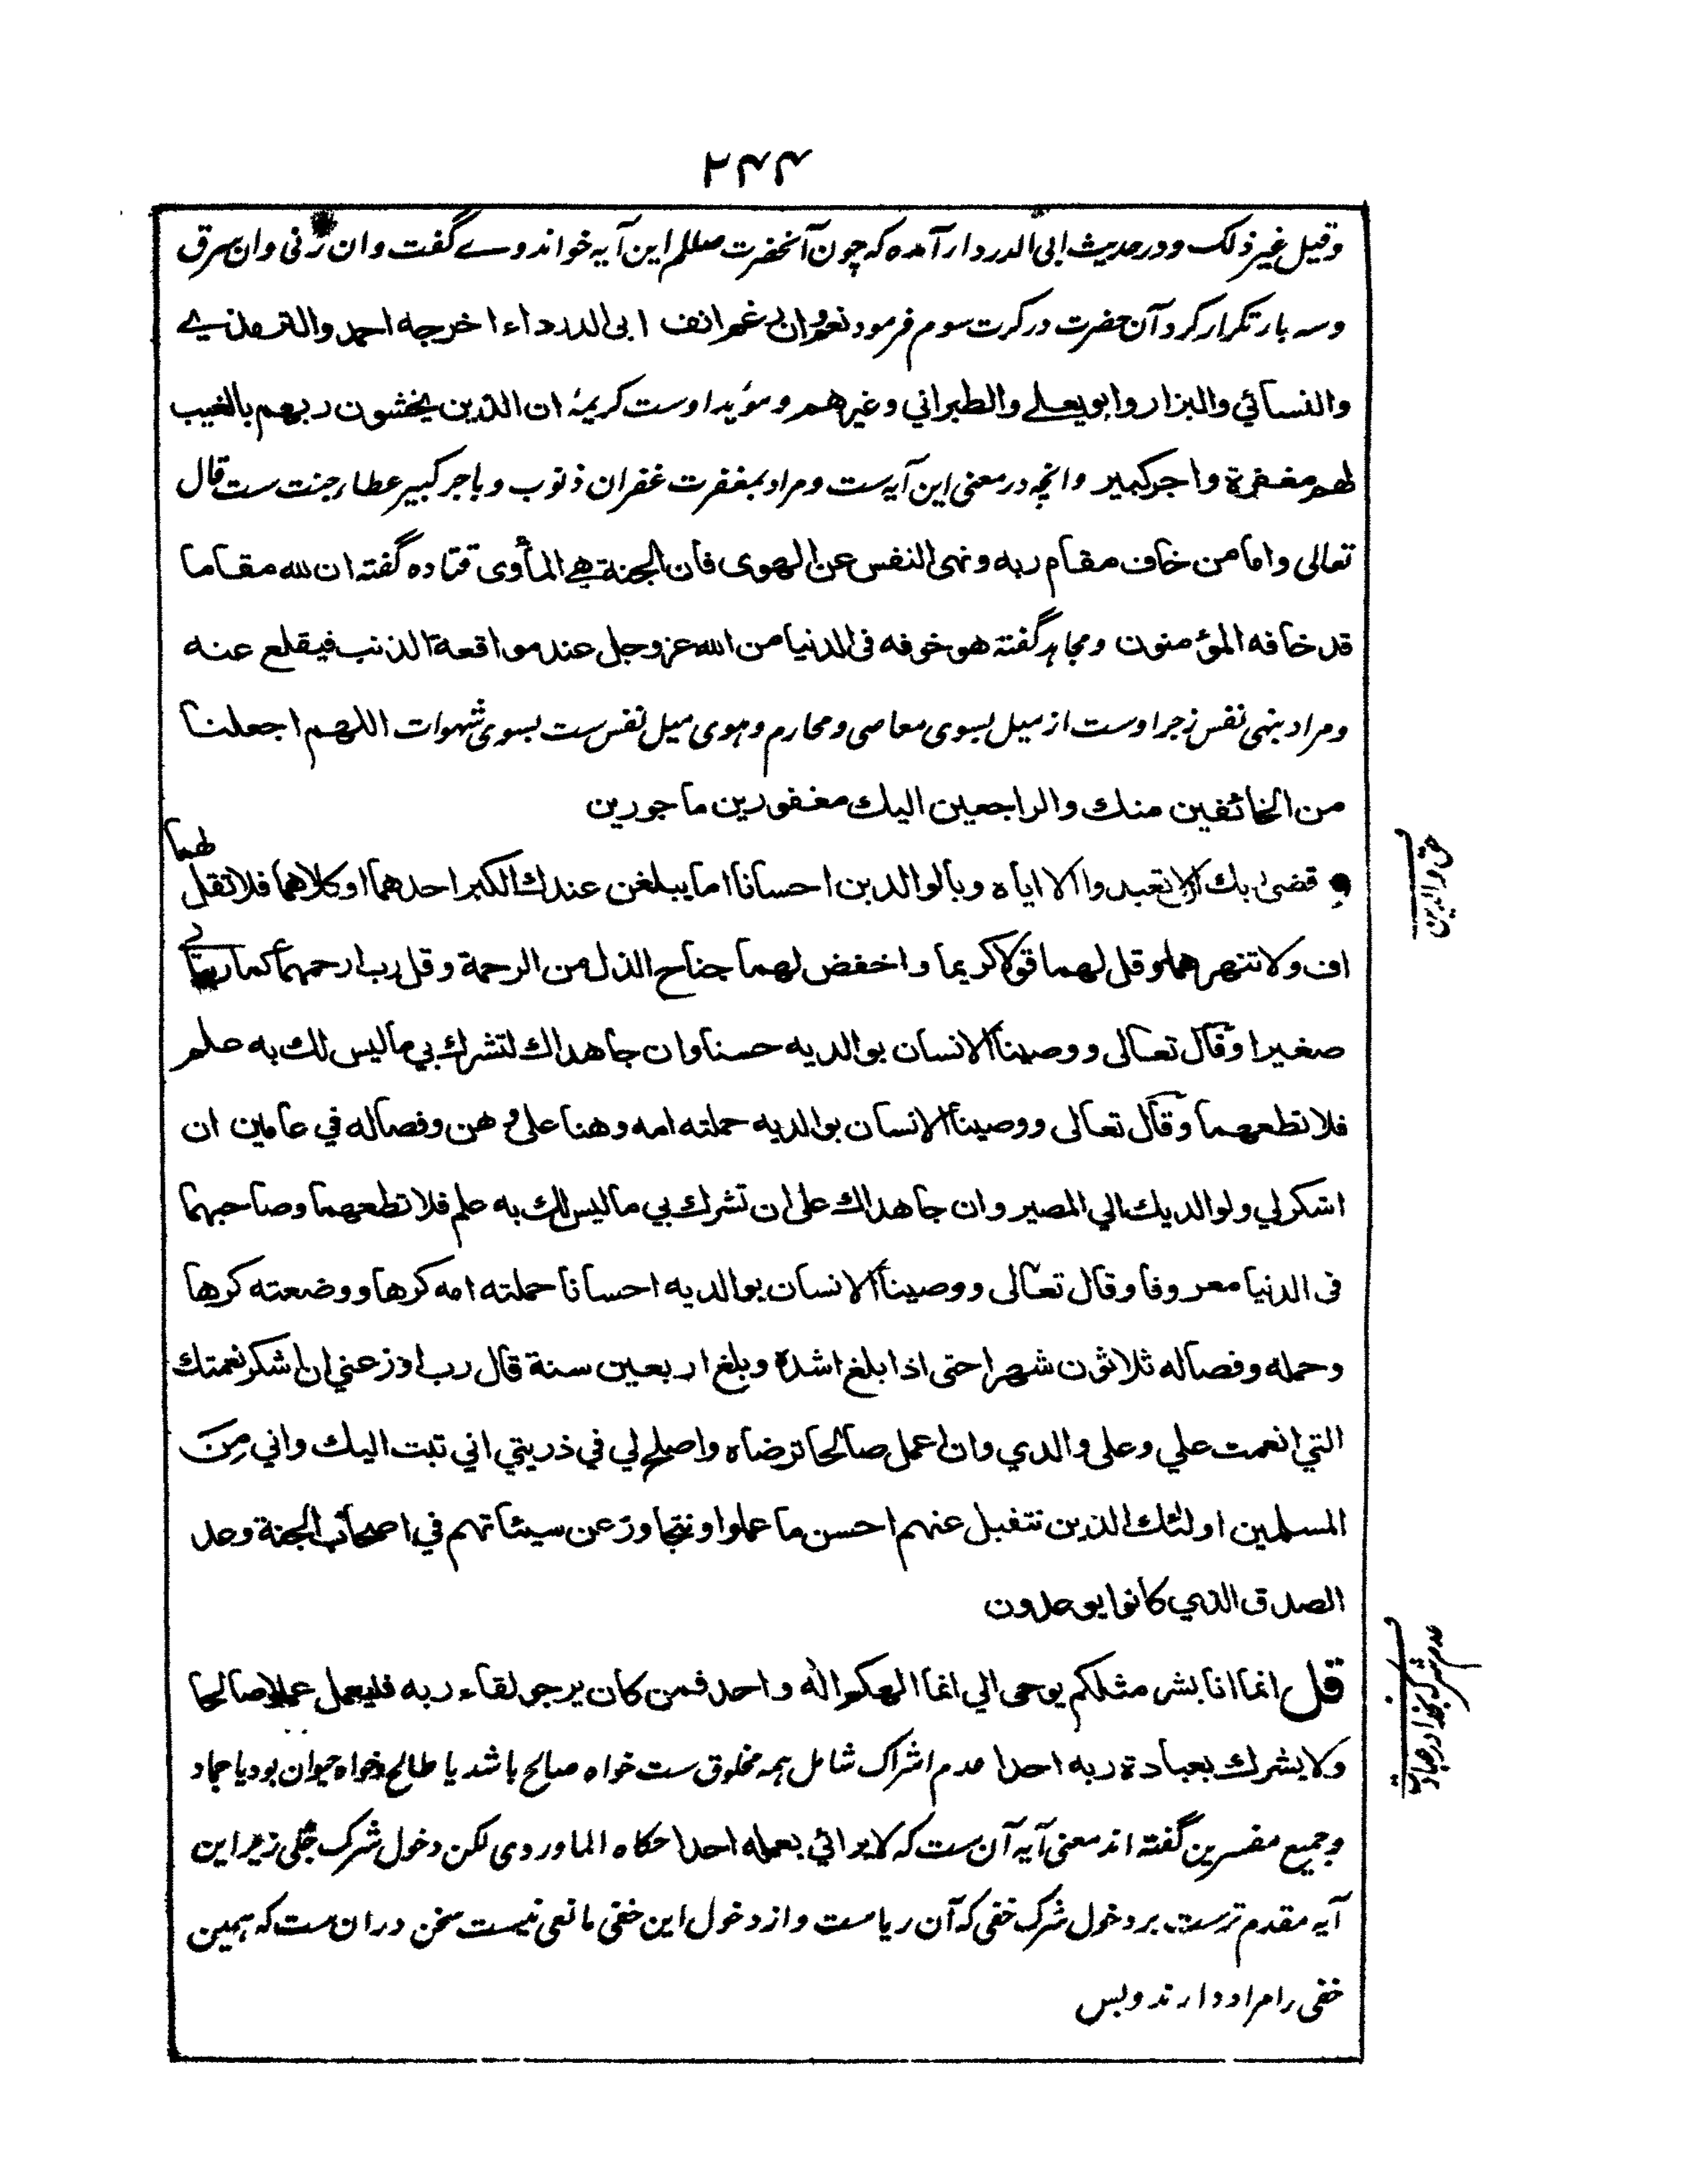 ۲۴۴
وقیل غیر ذلک ودر حدیث ابی الدرداء آمده که چون آنحضرت صللم این آیه خواند وے گفت وان زنی وان سرق
وسه بار تکرار کرد آن حضرت در کرت سوم فرمود نعم وان رغم انف ابی الدرداء اخرجه احمد والترمذیے
والنسائي والبزار وابو یعلے والطبراني وغیرهم ومؤید اوست کریمۂ ان الذین یخشون ربهم بالغیب
لهم مغفرة واجر کبیر وانچه در معنی این آیه ست ومراد بمغفرت غفران ذنوب وباجر کبیر عطاء جنت ست قال
تعالی واما من خاف مقام ربه ونهی النفس عن الهوی فان الجنة هي المأوی قتاده گفته ان لله مقاما
قد خافه المؤمنون ومجاهد گفته هو خوفه فی الدنیا من الله عز وجل عند مواقعة الذنب فیقلع عنه
ومراد بنهی نفس زجر اوست از میل بسوی معاصی ومحارم وهوی میل نفس ست بسوی شهوات اللهم اجعلنا
من الخائفین منك والراجعین الیك مغفورین ماجورین
حق والدین
• قضی ربك الا تعبدوا الا ایاه وبالوالدین احسانا اما یبلغن عندك الکبر احدهما او کلاهما فلا تقل لهما
اف ولا تنهرهما وقل لهما قولا کریما واخفض لهما جناح الذل من الرحمة وقل رب ارحمهما کما ربیاني
صغیرا وقال تعالی ووصینا الانسان بوالدیه حسنا وان جاهداك لتشرك بي ما لیس لك به علم
فلا تطعهما وقال تعالی ووصینا الانسان بوالدیه حملته امه وهنا علی وهن وفصاله في عامین ان
اشکر لي ولوالدیك الي المصیر وان جاهداك علی ان تشرك بي ما لیس لك به علم فلا تطعهما وصاحبهما
فی الدنیا معروفا وقال تعالی ووصینا الانسان بوالدیه احسانا حملته امه کرها ووضعته کرها
وحمله وفصاله ثلاثون شهرا حتی اذا بلغ اشده وبلغ اربعین سنة قال رب اوزعني ان اشکر نعمتك
التي انعمت علي وعلی والدي وان اعمل صالحا ترضاه واصلح لي في ذریتي اني تبت الیك واني مِنَ
المسلمین اولئك الذین نتقبل عنهم احسن ما عملوا ونتجاوز عن سیئاتهم في اصحاب الجنة وعد
الصدق الذي کانوا یوعدون
عدم شرک بخدا در عبادت
قل انما انا بشر مثلکم یوحی الي انما الهکم اله واحد فمن کان یرجو لقاء ربه فلیعمل عملا صالحا
ولا یشرك بعبادة ربه احدا عدم اشراک شامل همه مخلوق ست خواه صالح باشد یا طالح وخواه حیوان بود یا جماد
وجمیع مفسرین گفته اند معنی آیه آن ست که لا یرائي بعمله احدا حکاه الماوردی لکن دخول شرک جلی زیر این
آیه مقدم ترست بر دخول شرک خفی که آن ریاست واز دخول این خفی مانعی نیست سخن دران ست که همین
خفی را مراد دارند وبس